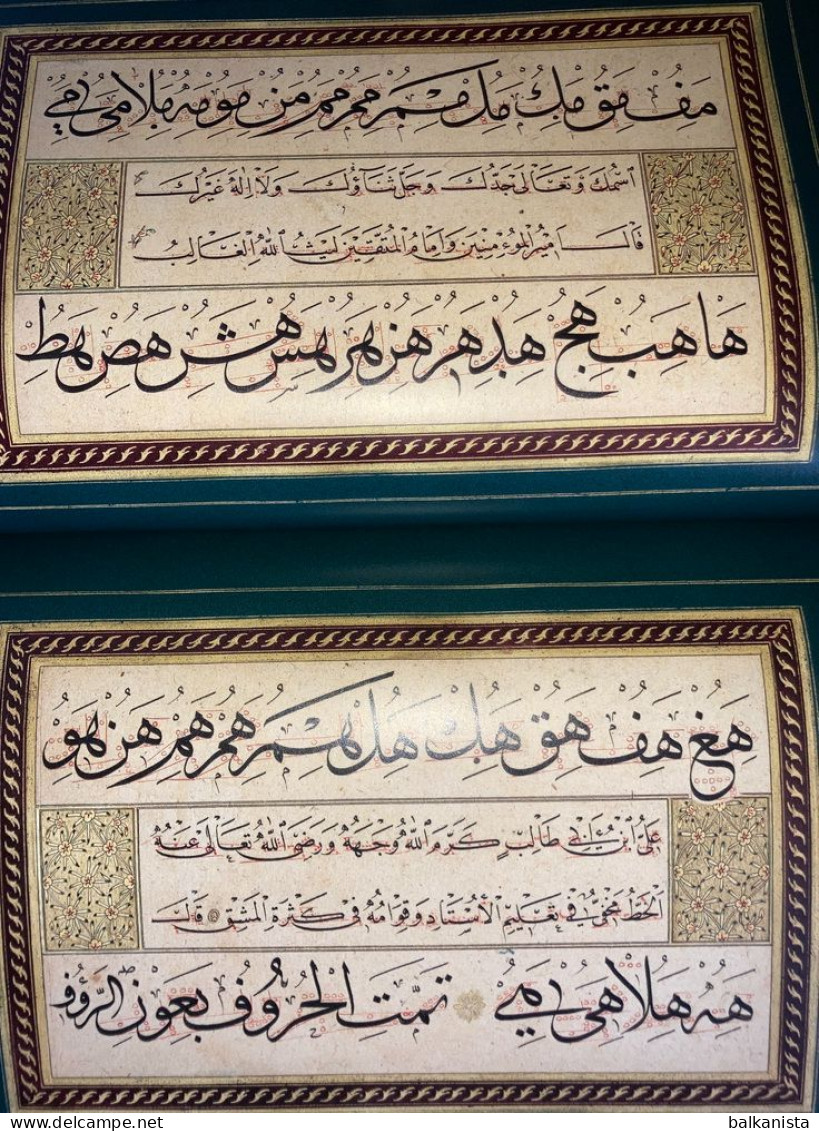 مف مق مك مل مم محر ممر من مو مه ملا مى مي
اسمك وتعالى جدك وجل ثناؤك ولا اله غيرك
قال امير المؤمنين وامام المتقين ليث الله الغالب
ها هب هج هد هر هز هس هش هص هط
هغ هف هق هك هل هم هن هو
علي ابن ابي طالب كرم الله وجهه ورضى الله تعالى عنه
الخط مخفي في تعليم الأستاد وقوامه في كثرة المشق قال
هه هلا هى تمت الحروف بعون الرؤف
balkanista